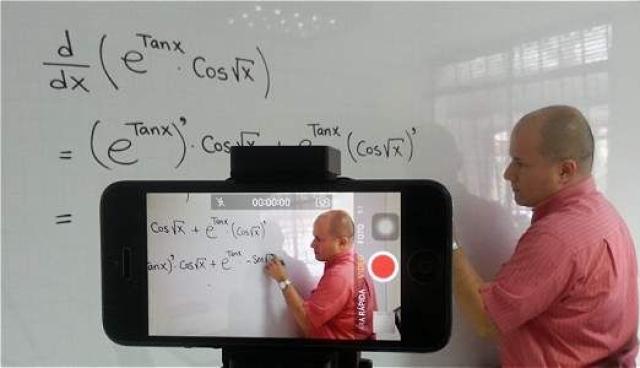 d/dx (e^Tanx · Cos√x)
= (e^Tanx)' · Cos√x + e^Tanx (Cos√x)'
=
00:00:00
Cos√x + e^Tanx · (Cos√x)'
anx)' · Cos√x + e^Tanx · -Sen
RA RÁPIDA VIDEO FOTO